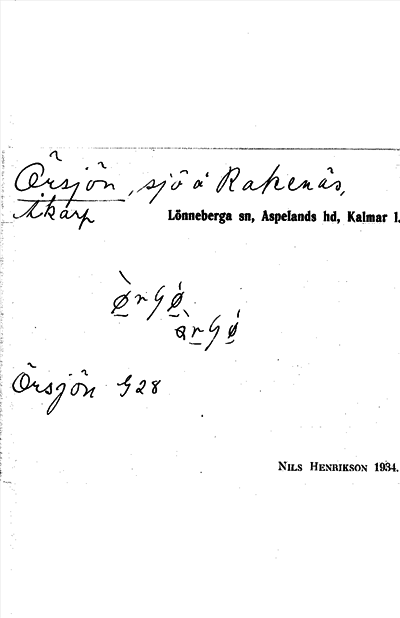 Örsjön, sjö å Rakenäs,
Åkarp
Lönneberga sn, Aspelands hd, Kalmar l.
Örsjön G28
NILS HENRIKSON 1934.